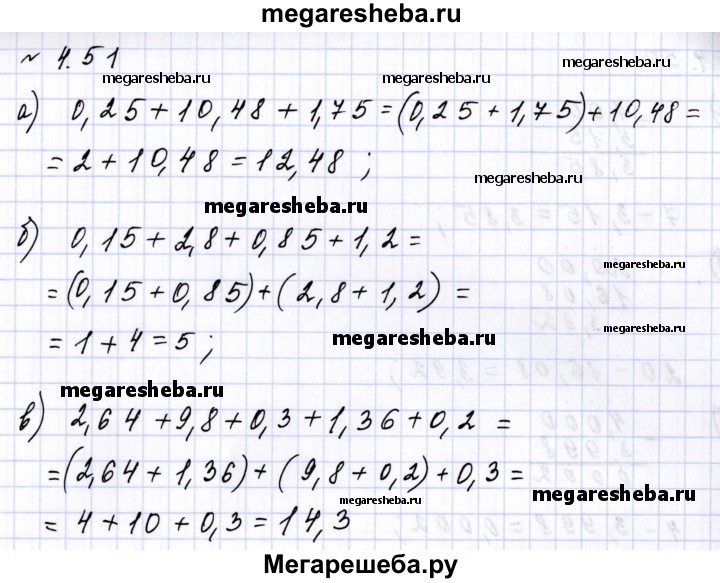 megaresheba.ru
№ 4.51
megaresheba.ru
megaresheba.ru
а) 0,25+10,48+1,75=(0,25+1,75)+10,48=
=2+10,48=12,48;
megaresheba.ru
megaresheba.ru
б) 0,15+2,8+0,85+1,2=
megaresheba.ru
=(0,15+0,85)+(2,8+1,2)=
megaresheba.ru
=1+4=5;
megaresheba.ru
megaresheba.ru
в) 2,64+9,8+0,3+1,36+0,2=
=(2,64+1,36)+(9,8+0,2)+0,3=
megaresheba.ru
megaresheba.ru
=4+10+0,3=14,3
Мегарешеба.ру